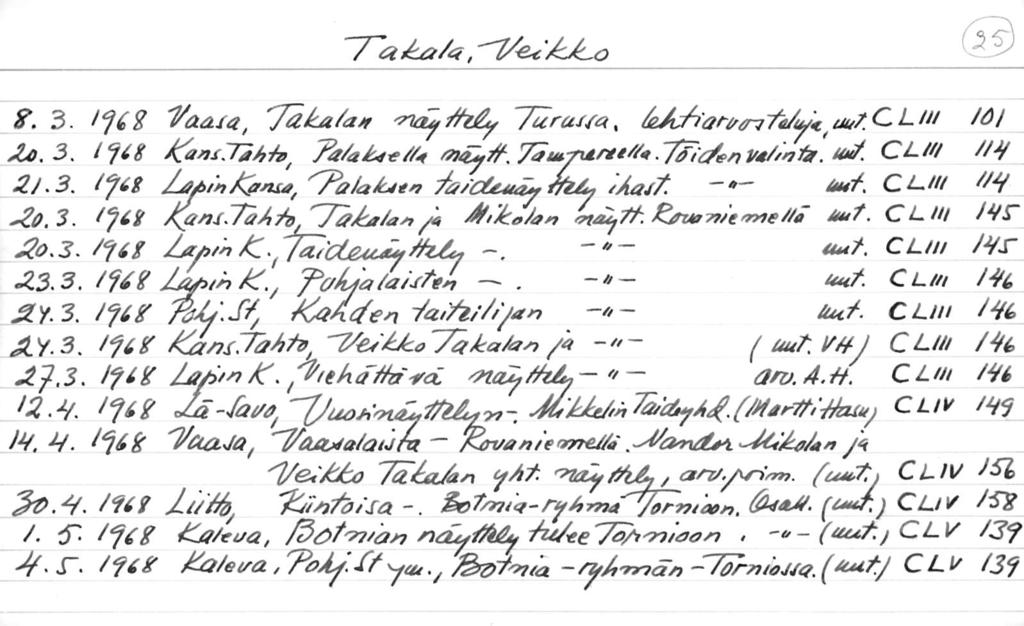 Takala, Veikko
25
8. 3. 1968 Vaasa, Takalan näyttely Turussa, lehtiarvosteluja, uut. CLIII 101
20. 3. 1968 Kans.Tahto, Palaksella näytt. Tampereella. Töiden valinta. uut. CLIII 114
21. 3. 1968 Lapin Kansa, Palaksen taidenäyttely ihast. –"– uut. CLIII 114
20. 3. 1968 Kans.Tahto, Takalan ja Mikolan näytt. Rovaniemellä uut. CLIII 145
20. 3. 1968 Lapin K., Taidenäyttely –. –"– uut. CLIII 145
23. 3. 1968 Lapin K., Pohjalaisten – . –"– uut. CLIII 146
24. 3. 1968 Pohj.St, Kahden taiteilijan –"– uut. CLIII 146
24. 3. 1968 Kans.Tahto, Veikko Takalan ja –"– (uut. VH) CLIII 146
27.3. 1968 Lapin K., Viehättävä näyttely –"– arv. A.H. CLIII 146
12. 4. 1968 Lä-Savo, Vuosinäyttelyn–. Mikkelin Taideyhd. (Martti Hasu) CLIV 149
14. 4. 1968 Vaasa, Vaasalaista – Rovaniemellä. Nandor Mikolan ja
Veikko Takalan yht. näyttely, arv.poim. (uut.) CLIV 156
30. 4. 1968 Liitto, Kiintoisa –. Botnia-ryhmä Tornioon. Osall. (uut.) CLIV 158
1. 5. 1968 Kaleva, Botnian näyttely tulee Tornioon . –"– (uut.) CLV 139
4. 5. 1968 Kaleva, Pohj.St ym., Botnia – ryhmän – Torniossa. (uut.) CLV 139